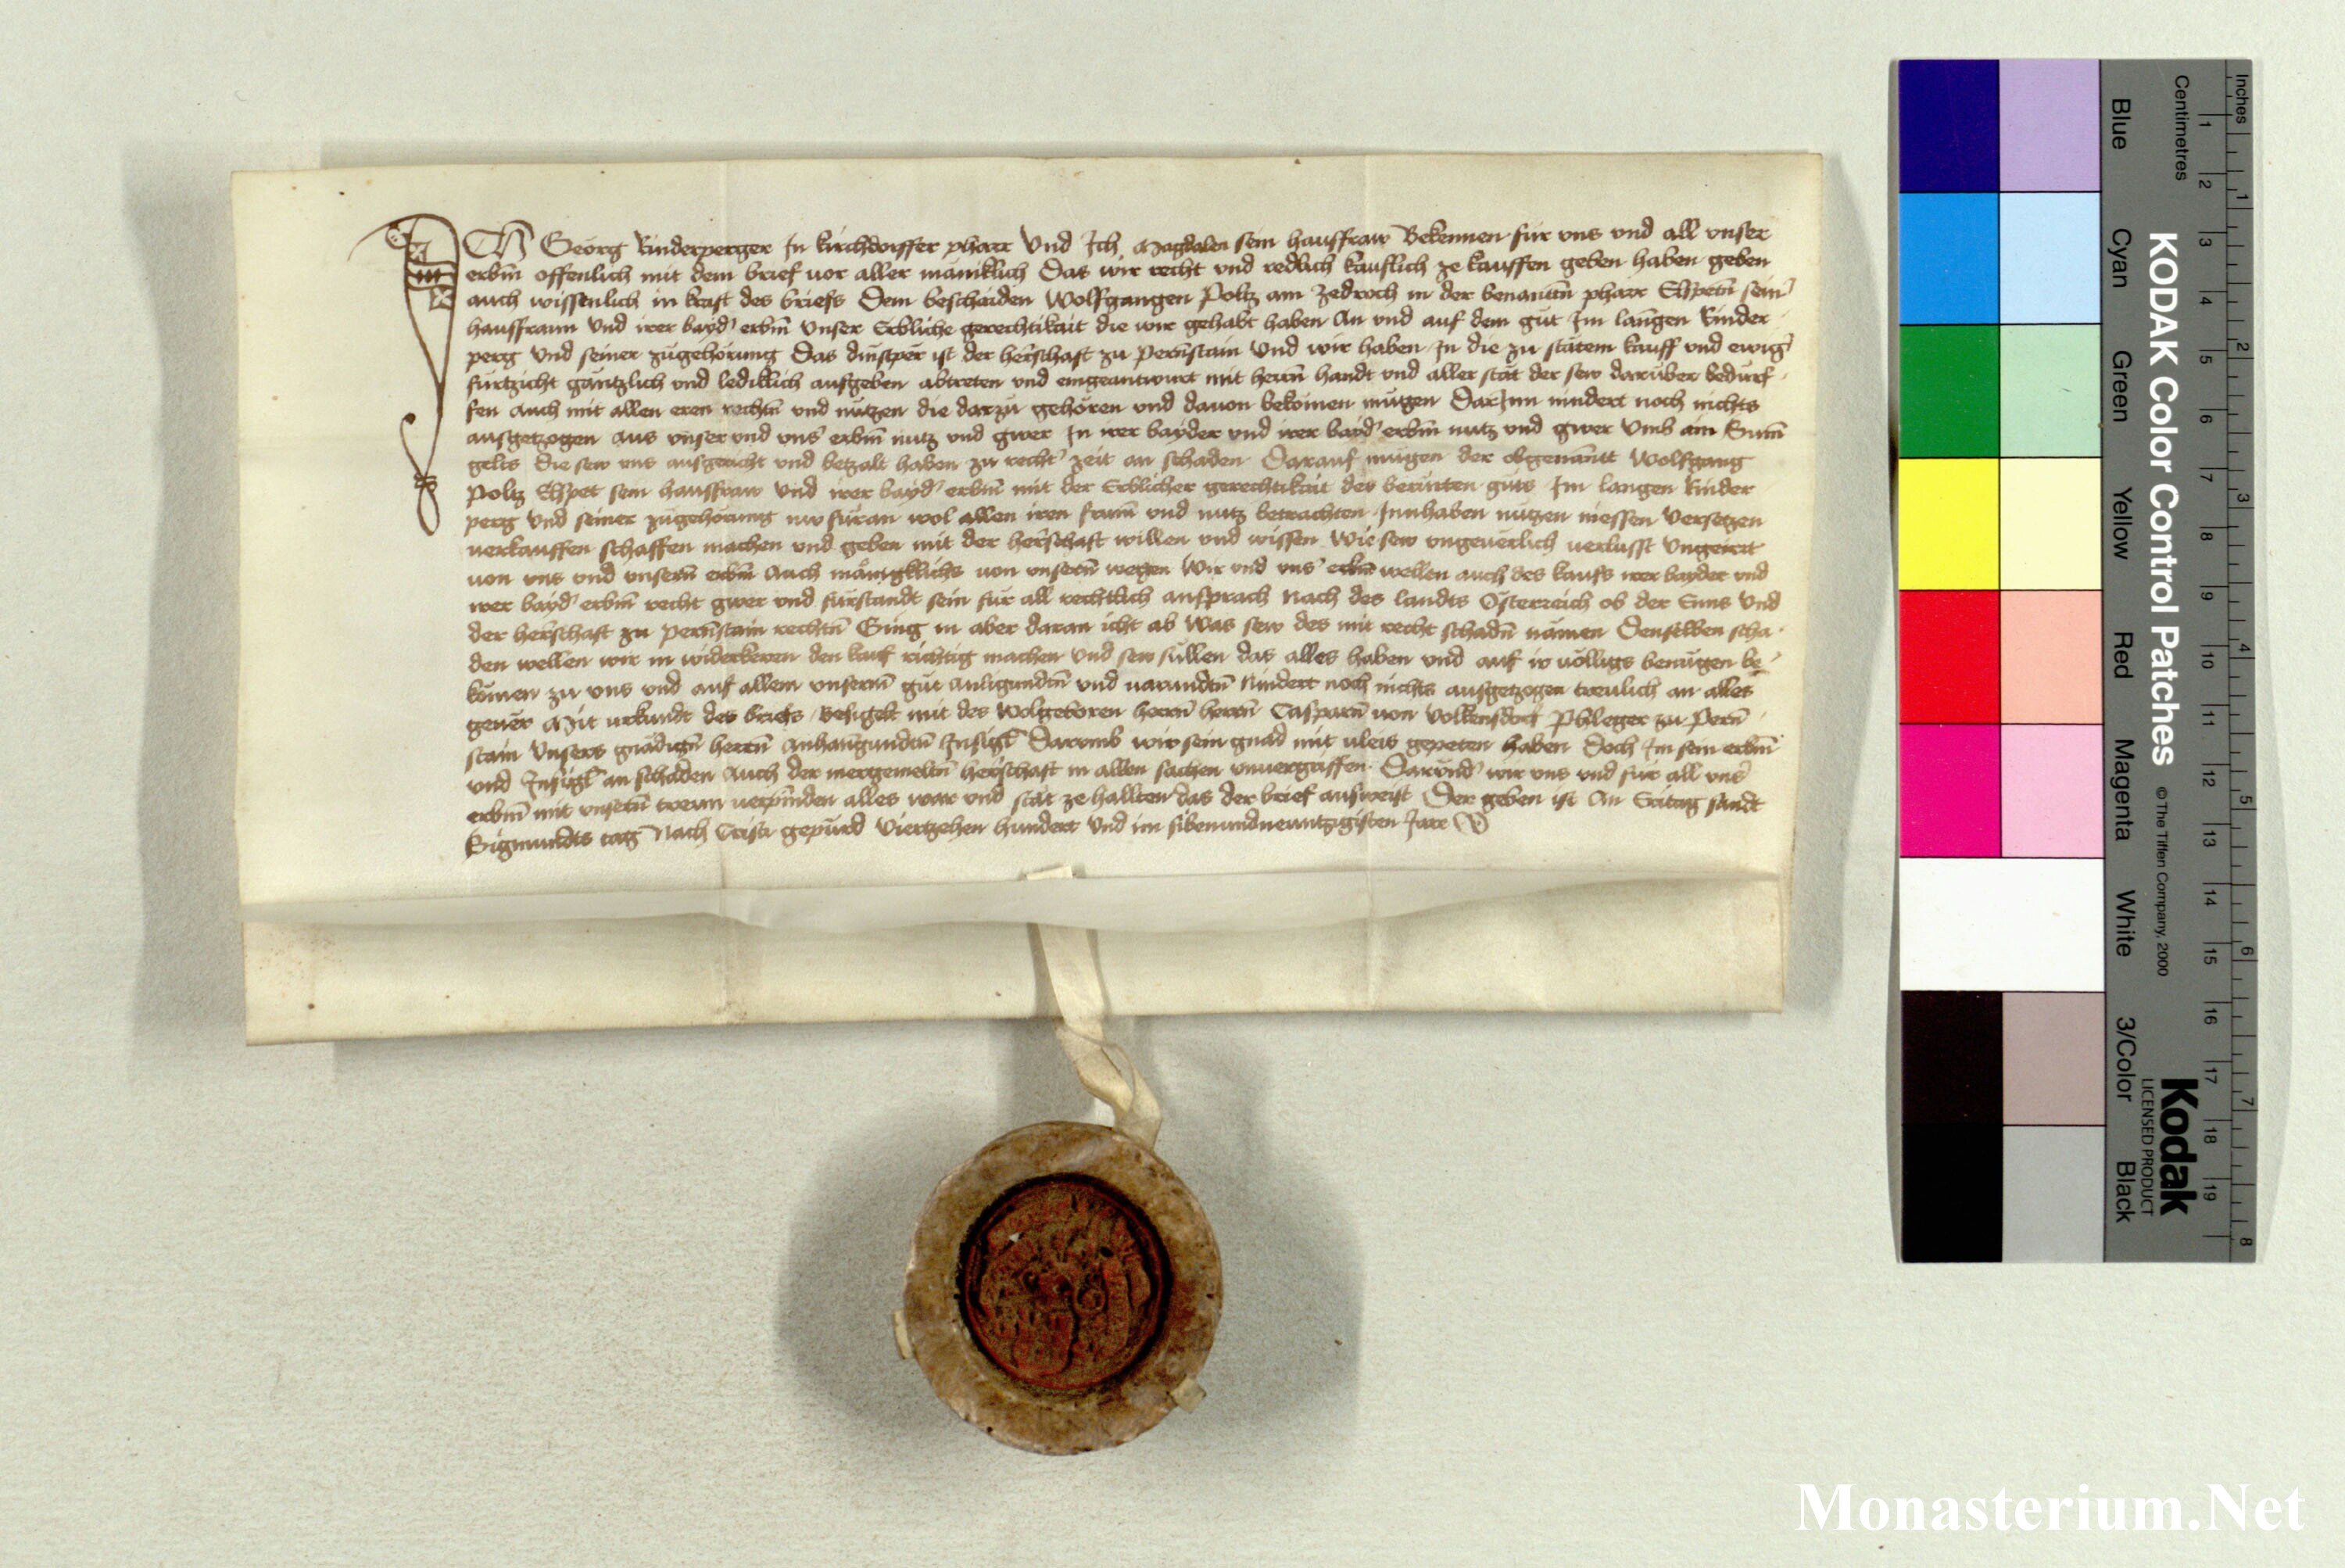 Ich Georg Kinderperger In kirchdorffer pharr Vnd Ich Magdalen sein hausfraw Bekennen für vns vnd all vnser
erbm̄ offenlich mit dem brief vor aller mäniklich Das wir recht vnd redlich kauflich ze kauffen geben haben geben
auch wissenlich in kraft des briefs Dem beschaiden Wolfgangen Poltz am Zedroch in der benantn̄ pharr Elspetn̄ sein'
hausfraun Vnd irer bayd' erbm̄ Vnser Erbliche gerechtikait die wir gehabt haben An vnd auf dem gut Im langen kinder
perg Vnd seiner zugehörung Das dinstper ist der herschaft zu Pern̄stain Vnd wir haben In die zu stätem kauff vnd ewig'
furtzicht gäntzlich vnd lediklich aufgeben abtreten vnd eingeantwurt mit herrn̄ handt vnd aller stät der sew darüber bedürf
fen Auch mit allen eren rechtn̄ vnd nützen die darzu gehören vnd dauon bekömen mügen DarInn nindert noch nichts
ausgetzogen Aus vnser vnd vns' erbm̄ nutz vnd gwer In irer bayder vnd irer bayd' erbm̄ nutz vnd gwer Vmb ain Sum̄
gelts die sew vns ausgericht vnd betzalt haben zu recht' zeit an schaden Darauf mügen der obgenantt Wolfgang
Poltz Elspet sein hausfraw Vnd irer bayd' erbm̄ mit der Erblicher gerechtikait des berürten guts Im langen kinder
perg Vnd seiner zugehörung nw füran wol allen iren frum̄ vnd nutz betrachten Innhaben nützen niessen Versetzen
uerkauffen schaffen machen vnd geben mit der herschaft willen vnd wissen Wie sew vngeuerlich uerlusst Vngeirrt
uon vns vnd vnsern̄ erbm̄ Auch mänigklichs von vnsern̄ wegen Wir vnd vns' erbm̄ wellen auch des kaufs irer bayder vnd
irer bayd' erbm̄ recht gwer vnd fürstandt sein für all rechtlich ansprach Nach des landts Österreich ob der Enns Vnd
der herschaft zu Pern̄stain rechtn̄ Ging in aber daran icht ab Was sew des mit recht schadn̄ nämen Denselben scha
den wellen wir in widerkeren den kauf richtig machen Vnd sew süllen das alles haben vnd auf ir völligs benügen be
kömen zu vns vnd auf allem vnserm̄ gut Anligundtn̄ vnd uarundtn̄ Nindert noch nichts ausgetzogen treulich an alles
geuer Mit vrkundt des briefs Besigelt mit des Wolgeboren herrn̄ herrn̄ Casparn̄ uon Volkenstorf Phleger zu Pern̄
stain Vnsers gnädign̄ herrn̄ Anhangundtn̄ Insigl' Darumb wir sein gnad mit uleis gepeten haben Doch Im sein erbm̄
vnd Insigl' an schaden Auch der mergemeltn̄ herschaft in allen sachen vnuergriffen Darund' wir vns vnd für all vns'
erbm̄ mit vnsern̄ trewn uerpinden alles war vnd stät ze hallten das der brief ausweist Der geben ist An Eritag sandt
Sigmundts tag Nach Cristi gepurd Viertzehen hundert Vnd im sibenundneuntzigisten Jare
KODAK Color Control Patches
© The Tiffen Company, 2000
Kodak
LICENSED PRODUCT
Blue Cyan Green Yellow Red Magenta White 3/Color Black
Inches 1 2 3 4 5 6 7 8
Centimetres 1 2 3 4 5 6 7 8 9 10 11 12 13 14 15 16 17 18 19
Monasterium.Net